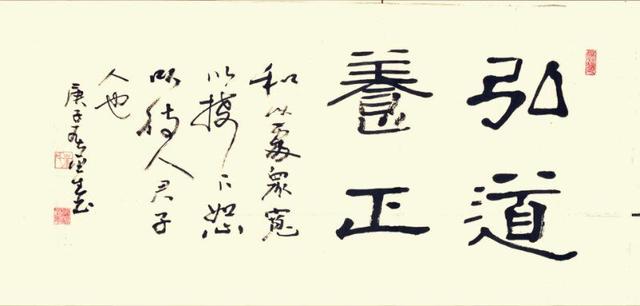 弘道
養正
和以處眾寬
以接下恕
以待人君子
人也
庚子